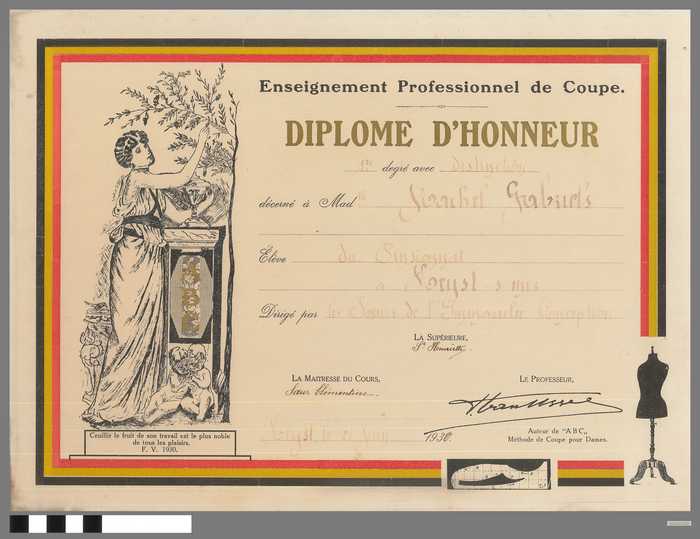 Enseignement Professionnel de Coupe.
DIPLOME D'HONNEUR
1er degré avec distinction
décerné à Mad lle Rachel Gabriels
Elève du Pensionnat
à
Dirigé par les Sœurs de l'Immaculée Conception
LA SUPÉRIEURE,
Sr Henriette
LA MAITRESSE DU COURS,
Sœur Clémentine
LE PROFESSEUR,
1930
Auteur de "ABC"
Méthode de Coupe pour Dames.
ABC
Cueillir le fruit de son travail est le plus noble
de tous les plaisirs.
F. V. 1930.